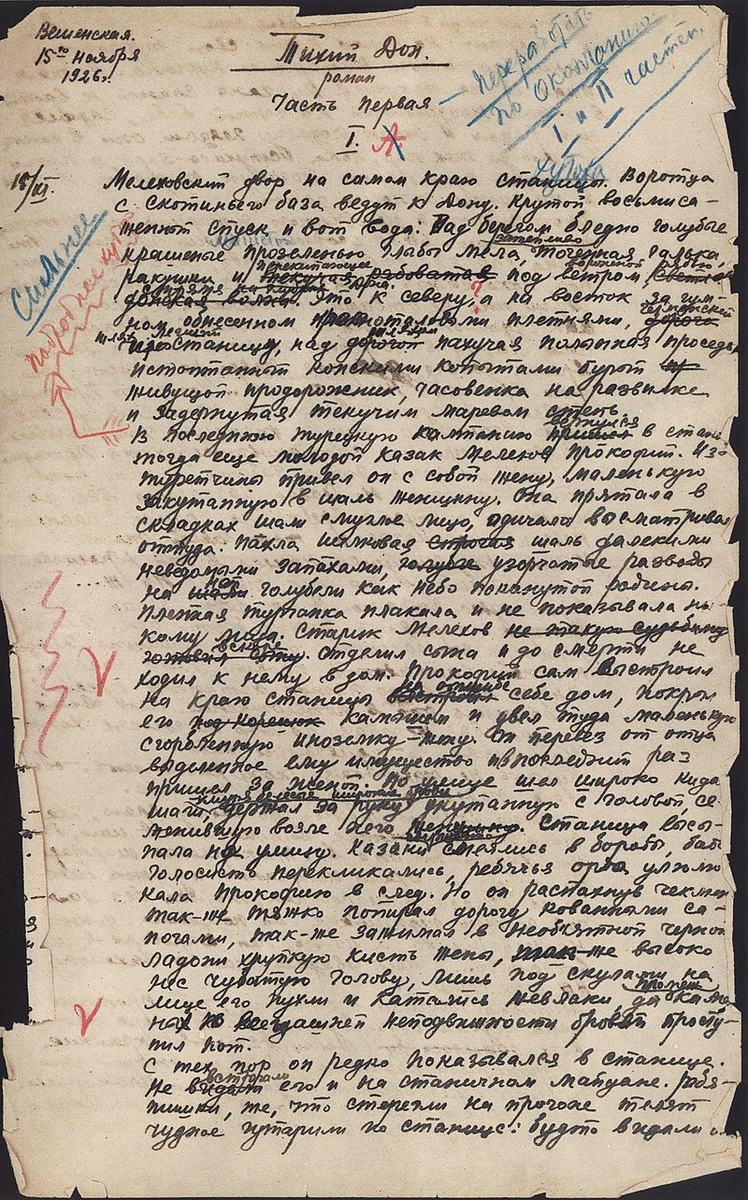 Вешенская.
15го ноября
1926г.
Тихий Дон.
роман
Часть первая
I. А
— переработать
по окончанию
I и II частей
хутора
15/XI.
Сильнее
подробнее
Мелеховский двор на самом краю станицы. Воротца
с скотиньего база ведут к Дону. Крутой восьмиса-
женный спуск и вот вода. Над берегом бледно голубые
крашеные прозеленью глыбы мела, точенная галька,
ракушки и перекипающее под ветром
Дона. Это к северу, а на восток за гум-
ном обнесенном плетнями,
станицу, над дорогой пахучая полынная проседь
истоптанный конскими копытами бурый
живущой продорожник, часовенка на развилке
и задернутая текучим маревом степь
вернулся
В последнюю турецкую кампанию пришел в стани
тогда еще молодой казак Мелехов Прокофий. Из
туретчины привел он с собой жену, маленькую
закутанную в шаль женщину. Она прятала в
складках шали смуглое лицо, одичало высматривая
оттуда. Пахла шелковая строгая шаль далекими
неведомыми запахами, узорчатые разводы
на ней голубели как небо покинутой родины.
Пленная турчанка плакала и не показывала ни-
кому лица. Старик Мелехов не такую судьбину
готовил сыну. вскоре отделил сына и до смерти не
ходил к нему в дом. Прокофий сам выстроил
на краю станицы выстроил себе дом, покрыл
его камышом и увел туда маленькую
сгорбленную иноземку-жену. Он перевез от отца
выделенное ему имущество и в последний раз
пришел за женой. По улице шел широко кида
шаги, держал за руку укутанную с головой се-
менившую возле него женщину. Станица высы-
пала на улицу. Казаки смеялись в бороды, бабы
голосисто перекликались, ребячья орда улюлю
кала Прокофию в след. Но он распахнув чекмен
так-же тяжко попирал дорогу кованными са-
погами, так-же зажимал в необъятной черной
ладони хрупкую кисть жены, так-же высоко
нес чубатую голову, лишь под скулами на
лице его пухли и катались желваки, да промеж камен
ных по всегдашней неподвижности бровей просту-
пил пот.
С тех пор он редко показывался в станице.
Не видали его и на станичном майдане. Ребя-
тишки, те, что стерегли на прогоне телят
чудное гутарили по станице: будто видали